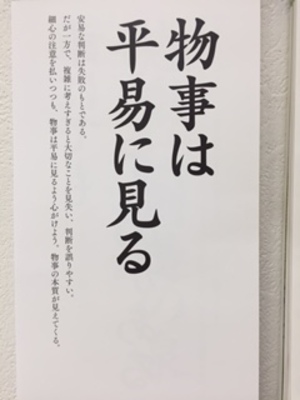 物事は
平易に見る
安易な判断は失敗のもとである。
だが一方で、複雑に考えすぎると大切なことを見失い、判断を誤りやすい。
細心の注意を払いつつも、物事は平易に見るよう心がけよう。物事の本質が見えてくる。